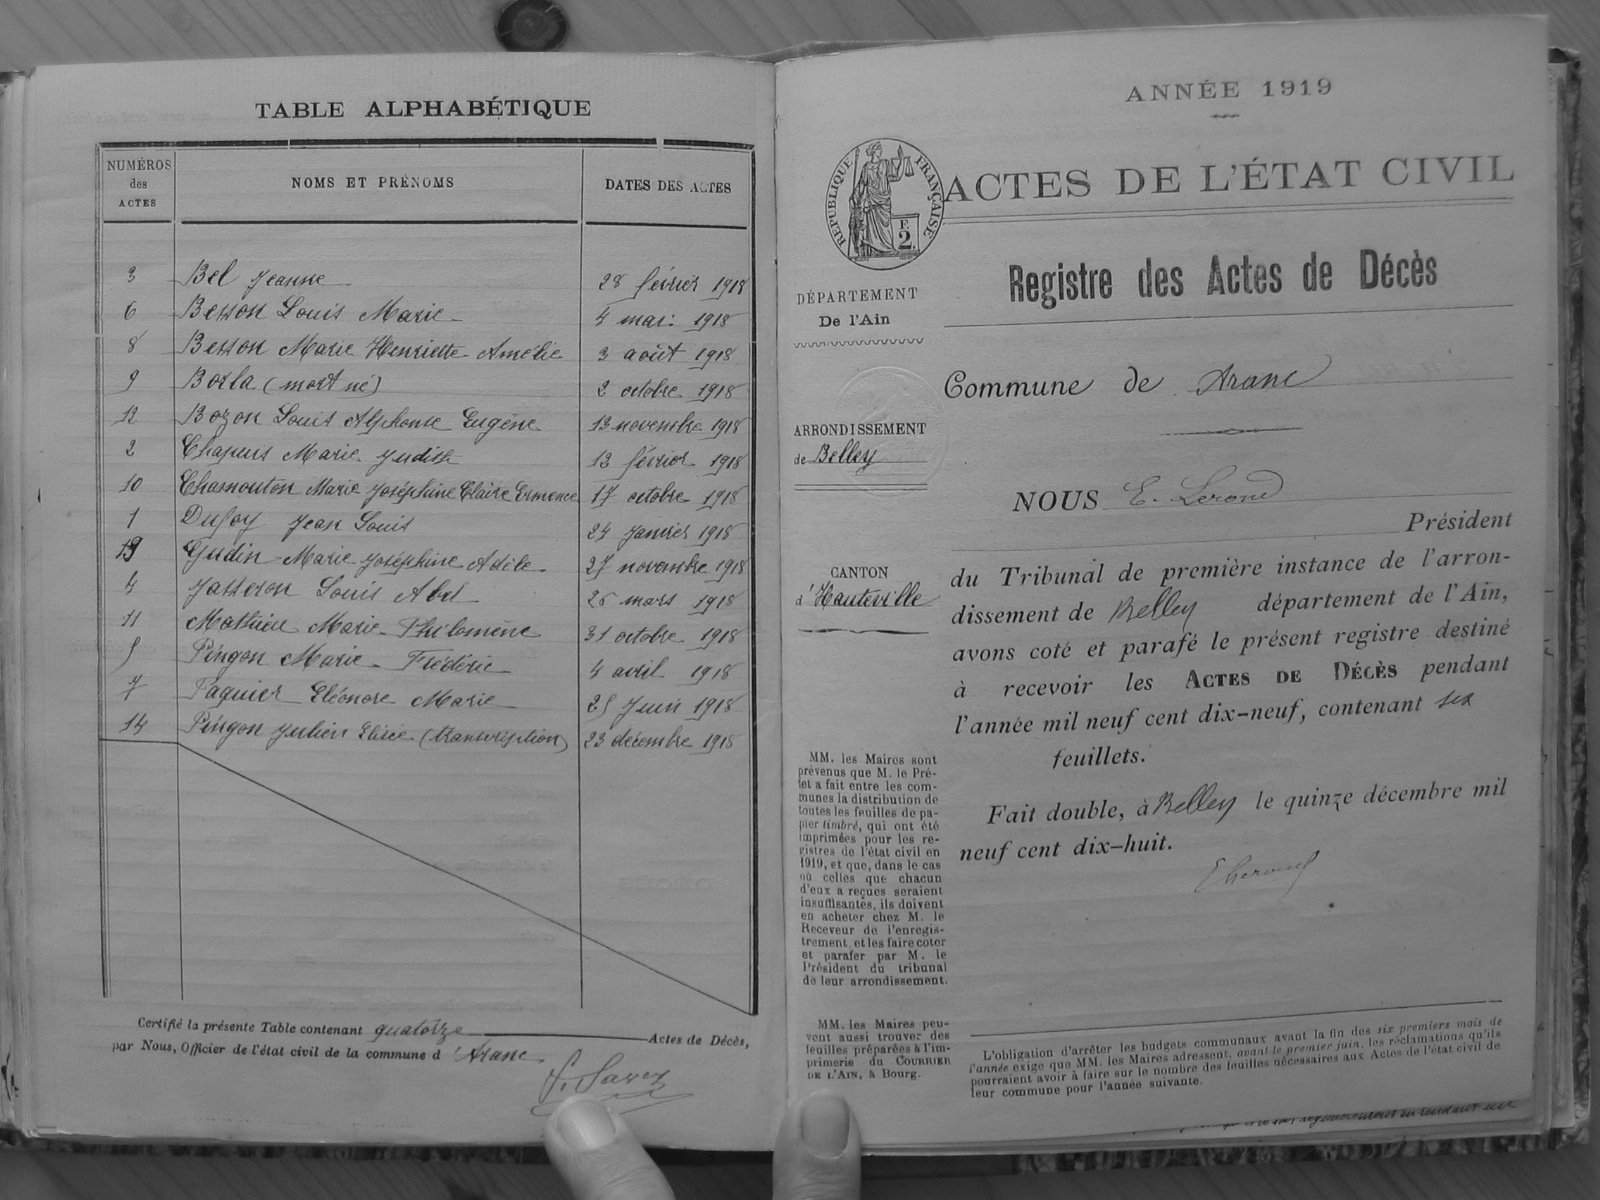 TABLE ALPHABÉTIQUE
NUMÉROS des ACTES | NOMS ET PRÉNOMS | DATES DES ACTES
3 Bel Jeanne 28 février 1918
6 Besson Louis Marie 4 mai 1918
8 Besson Marie Henriette Amélie 3 août 1918
9 Borla (mort né) 2 octobre 1918
12 Bozon Louis Alphonse Eugène 13 novembre 1918
2 Chapuis Marie Judith 13 février 1918
10 Chamouton Marie Joséphine Claire Ermence 17 octobre 1918
1 Dufoy Jean Louis 24 janvier 1918
13 Gudin Marie Joséphine Adèle 27 novembre 1918
4 Jasseron Louis Abel 26 mars 1918
11 Mathieu Marie Philomène 31 octobre 1918
5 Pingon Marie Frédéric 4 avril 1918
7 Paquier Eléonore Marie 25 Juin 1918
14 Pingon Julien Elisée (transcription) 23 décembre 1918
Certifié la présente Table contenant quatorze Actes de Décès,
par Nous, Officier de l'état civil de la commune d'Aranc
ANNÉE 1919
RÉPUBLIQUE FRANÇAISE
F. 2
ACTES DE L'ÉTAT CIVIL
Registre des Actes de Décès
DÉPARTEMENT
De l'Ain
ARRONDISSEMENT
de Belley
CANTON
d'Hauteville
Commune de Aranc
NOUS E.
Président
du Tribunal de première instance de l'arron-
dissement de Belley département de l'Ain,
avons coté et parafé le présent registre destiné
à recevoir les ACTES DE DÉCÈS pendant
l'année mil neuf cent dix-neuf, contenant six
feuillets.
Fait double, à Belley le quinze décembre mil
neuf cent dix-huit.
MM. les Maires sont
prévenus que M. le Pré-
fet a fait entre les com-
munes la distribution de
toutes les feuilles de pa-
pier timbré, qui ont été
imprimées pour les re-
gistres de l'état civil en
1919, et que, dans le cas
où celles que chacun
d'eux a reçues seraient
insuffisantes, ils doivent
en acheter chez M. le
Receveur de l'enregis-
trement, et les faire coter
et parafer par M. le
Président du tribunal
de leur arrondissement.
MM. les Maires peu-
vent aussi trouver des
feuilles préparées à l'im-
primerie du COURRIER
DE L'AIN, à Bourg.
L'obligation d'arrêter les budgets communaux avant la fin des six premiers mois de
l'année exige que MM. les Maires adressent, avant le premier juin, les réclamations qu'ils
pourraient avoir à faire sur le nombre des feuilles nécessaires aux Actes de l'état civil de
leur commune pour l'année suivante.